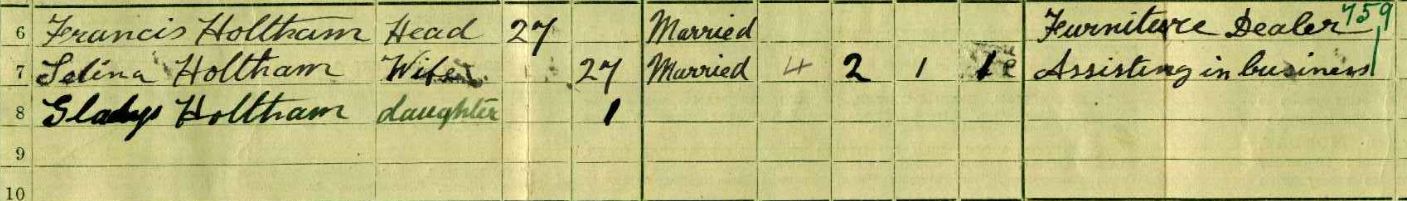 6 Francis Holtham Head 27 Married Furniture Dealer 759
7 Selina Holtham Wife 27 Married 4 2 1 1 Assisting in business
8 Gladys Holtham daughter 1
9
10